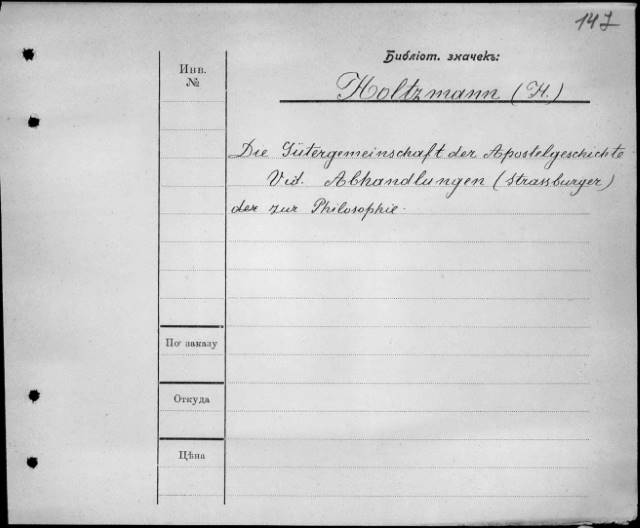 147
Библіот. значекъ:
Инв.
№
Holtzmann (H.)
Die Gütergemeinschaft der Apostelgeschichte
Vid. Abhandlungen (Strassburger)
der zur Philosophie.
По заказу
Откуда
Цѣна